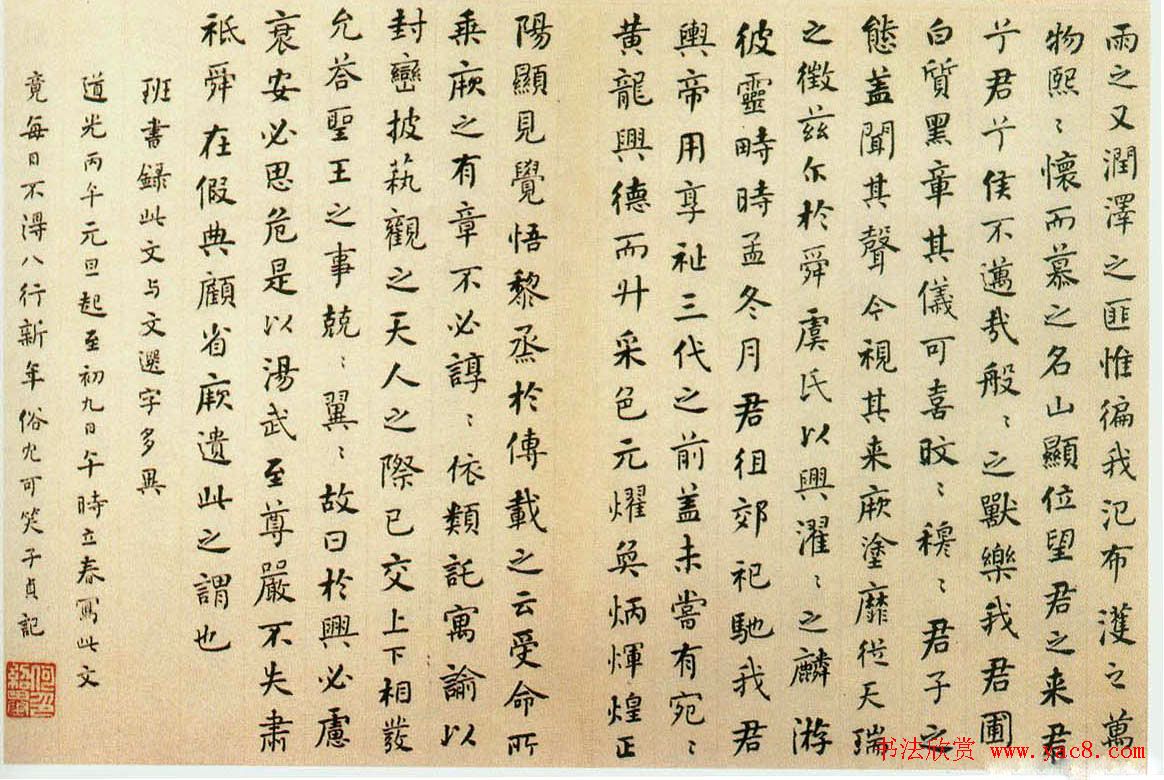 雨之又潤澤之匪惟徧我氾布濩之萬
物熙〻懷而慕之名山顯位望君之来君
兮君兮侯不邁哉般〻之獸樂我君囿
白質黑章其儀可喜旼〻穆〻君子之
態蓋聞其聲今視其来厥塗靡從天瑞
之徵兹尔於舜虞氏以興濯〻之麟游
彼靈畤時孟冬月君徂郊祀馳我君
輿帝用享祉三代之前蓋未嘗有宛〻
黄龍興德而升采色元燿奐炳煇煌正
陽顯見覺悟黎烝於傳載之云受命所
乗厥之有章不必諄〻依類託寓諭以
封巒披蓺觀之天人之際已交上下相發
允荅聖王之事兢〻翼〻故曰於興必慮
衰安必思危是以湯武至尊嚴不失肅
祗舜在假典顧省厥遺此之謂也
班書録此文与文選字多異
道光丙午元旦起至初九日午時立春寫此文
竟每日不得八行新年俗冗可笑子貞記
何紹基
书法欣赏 www.yac8.com